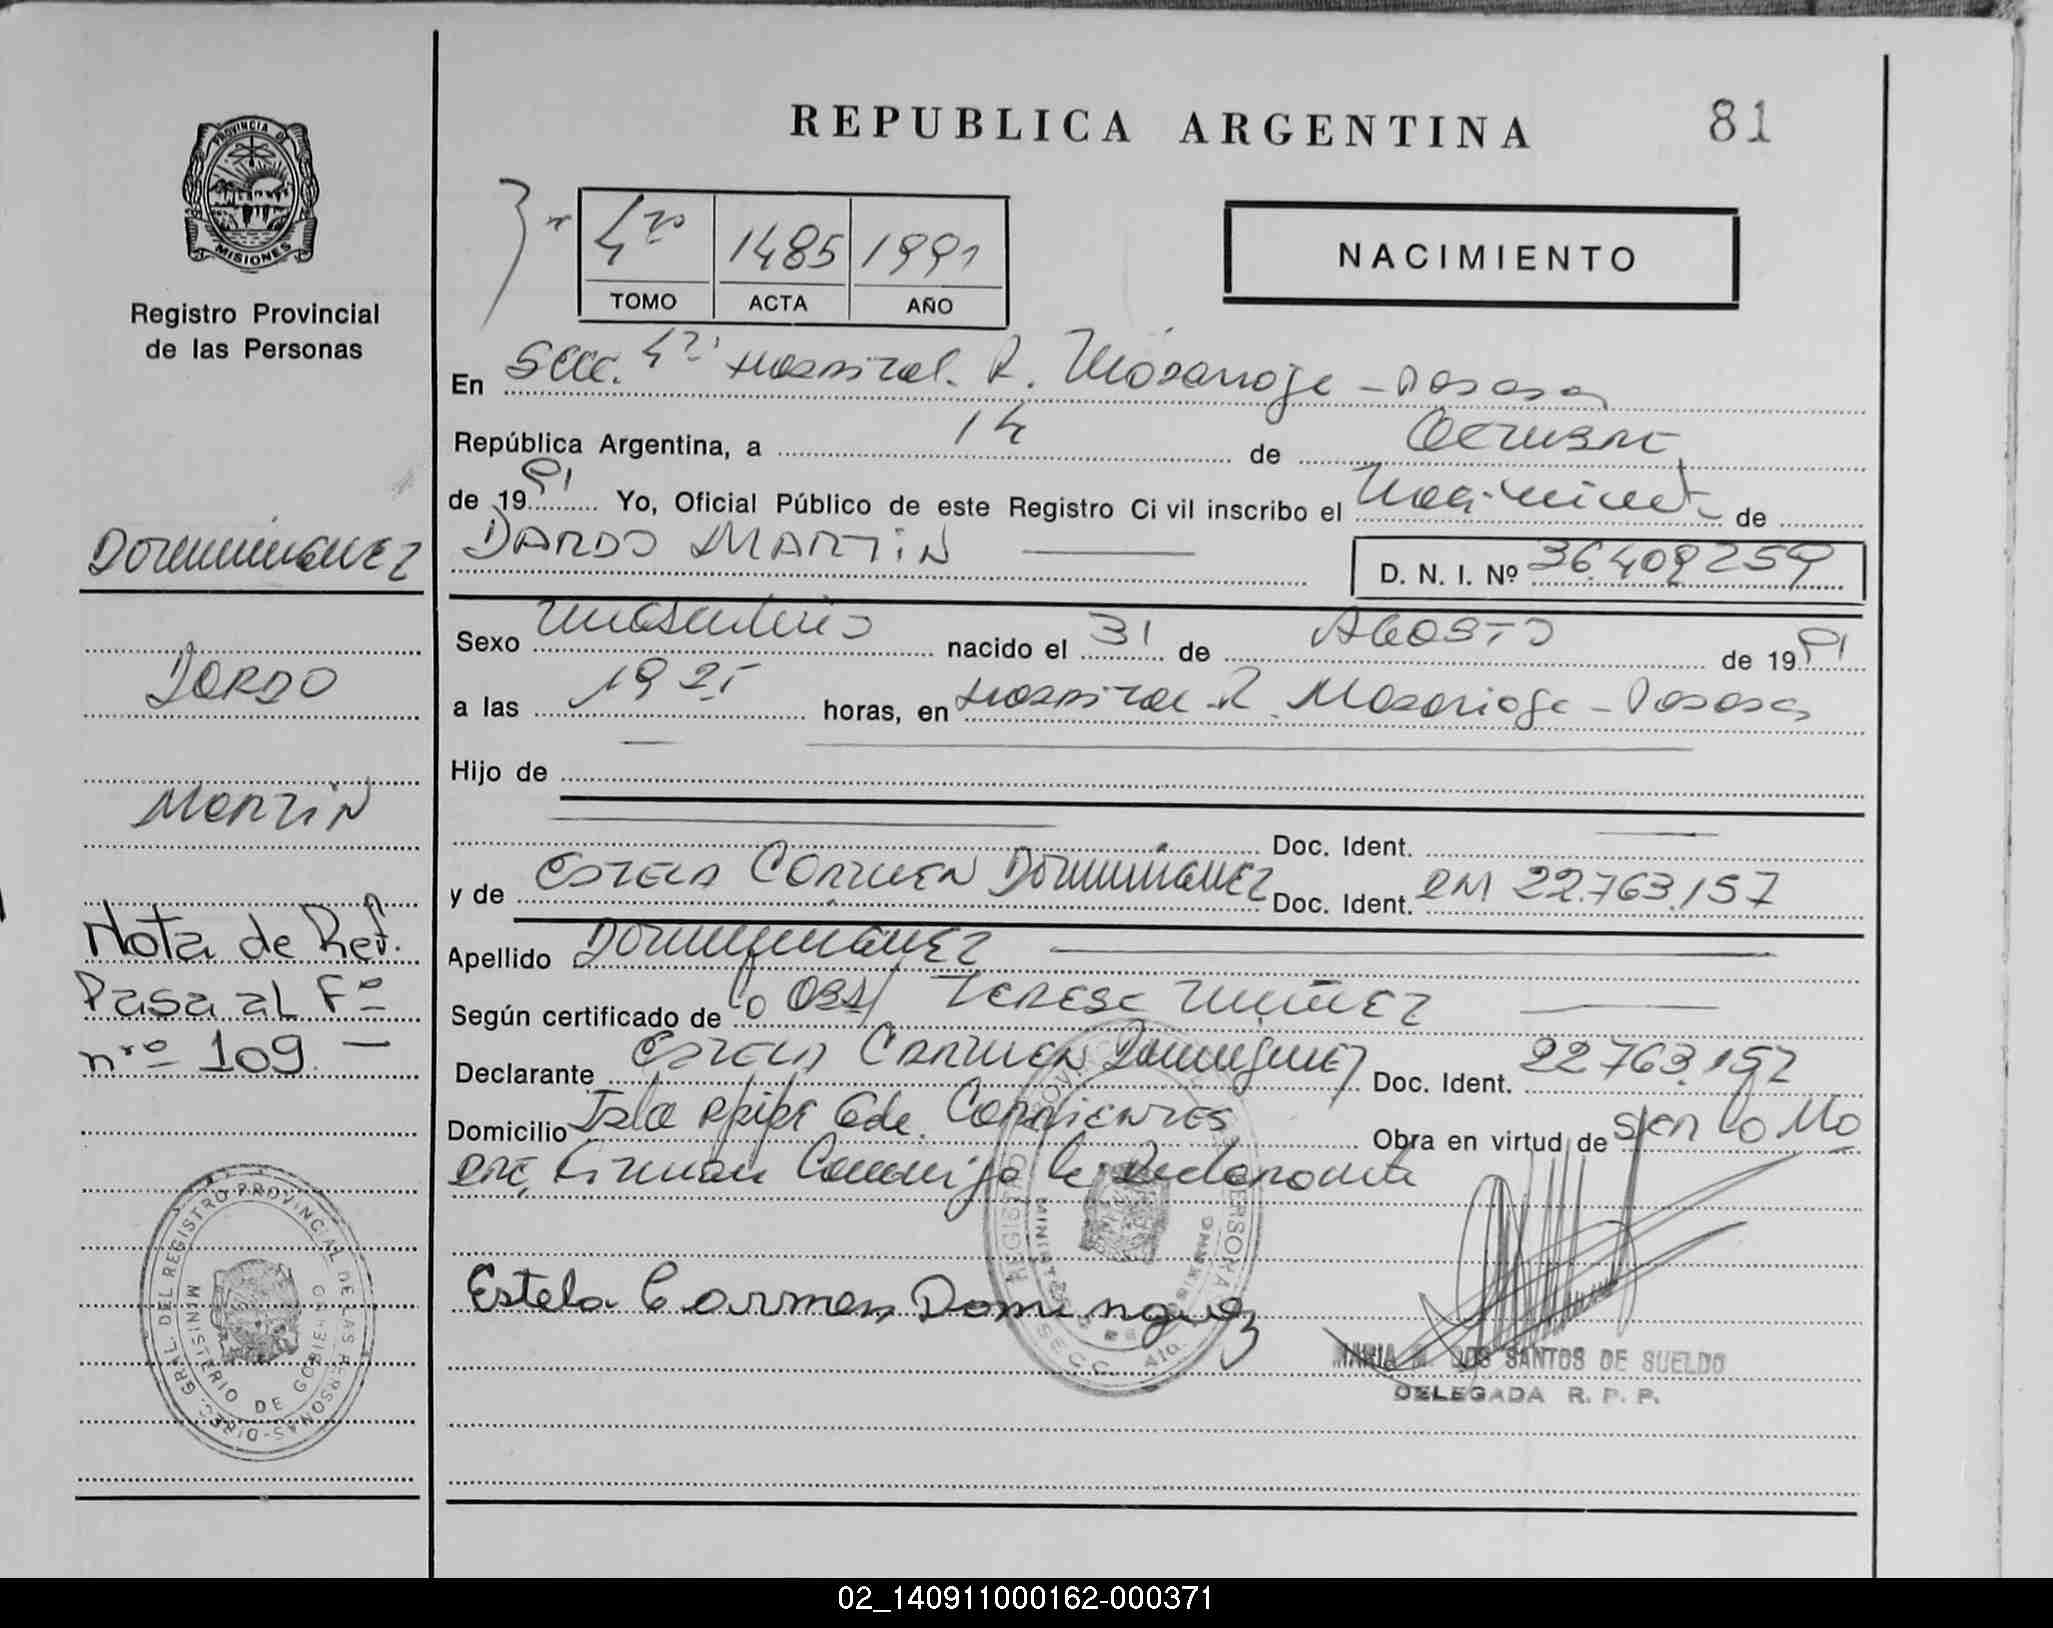 REPUBLICA ARGENTINA
81
PROVINCIA DE
MISIONES
Registro Provincial
de las Personas
4to
1485
1991
TOMO
ACTA
AÑO
NACIMIENTO
En Secc. 4ta Hospital R. Madariaga - Posadas
República Argentina, a 14 de Octubre
de 1991 Yo, Oficial Público de este Registro Civil inscribo el Nacimiento de
DARDO MARTIN
D. N. I. Nº 36.409259
Sexo Masculino nacido el 31 de AGOSTO de 1991
a las 1925 horas, en Hospital R. Madariaga - Posadas
Hijo de
Doc. Ident.
y de ESTELA CARMEN DOMINGUEZ Doc. Ident. DNI 22.763.157
Apellido DOMINGUEZ
Según certificado de la Obst TERESA NUÑEZ
Declarante ESTELA CARMEN Dominguez Doc. Ident. 22763.157
Domicilio Isla Apipe Gde. CORRIENTES Obra en virtud de ser la Ma
dre, Firman Conmigo la Declarante
Estela Carmen Dominguez
MARIA DOS SANTOS DE SUELDO
DELEGADA R. P. P.
DOMINGUEZ
DARDO
MARTIN
Nota de Ref.
Pasa al Fº
nrº 109. -
DIREC. GRAL. DEL REGISTRO PROVINCIAL DE LAS PERSONAS
MINISTERIO DE GOBIERNO
02_140911000162-000371